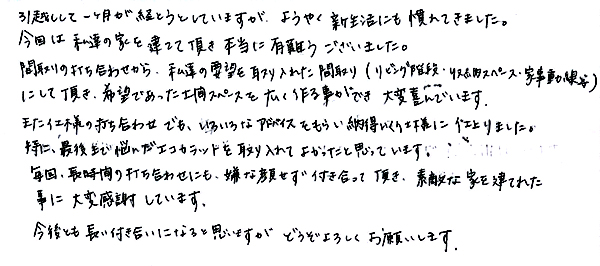 引越しして一ヶ月が経とうとしていますが、ようやく新生活にも慣れてきました。
今回は私達の家を建てて頂き本当に有難うございました。
間取りの打ち合わせから、私達の要望を取り入れた間取り(リビング階段・収納スペース・家事動線等)
にして頂き、希望であった土間スペースを広く作る事ができ大変喜んでいます。
また仕様の打ち合わせでも、いろいろなアドバイスをもらい納得いく仕様に仕上りました。
特に、最後まで悩んだエコカラットを取り入れてよかったと思っています。
毎回、長時間の打ち合わせにも、嫌な顔せず付き合って頂き、素敵な家を建てれた
事に大変感謝しています。
今後とも長い付き合いになると思いますがどうぞよろしくお願いします。